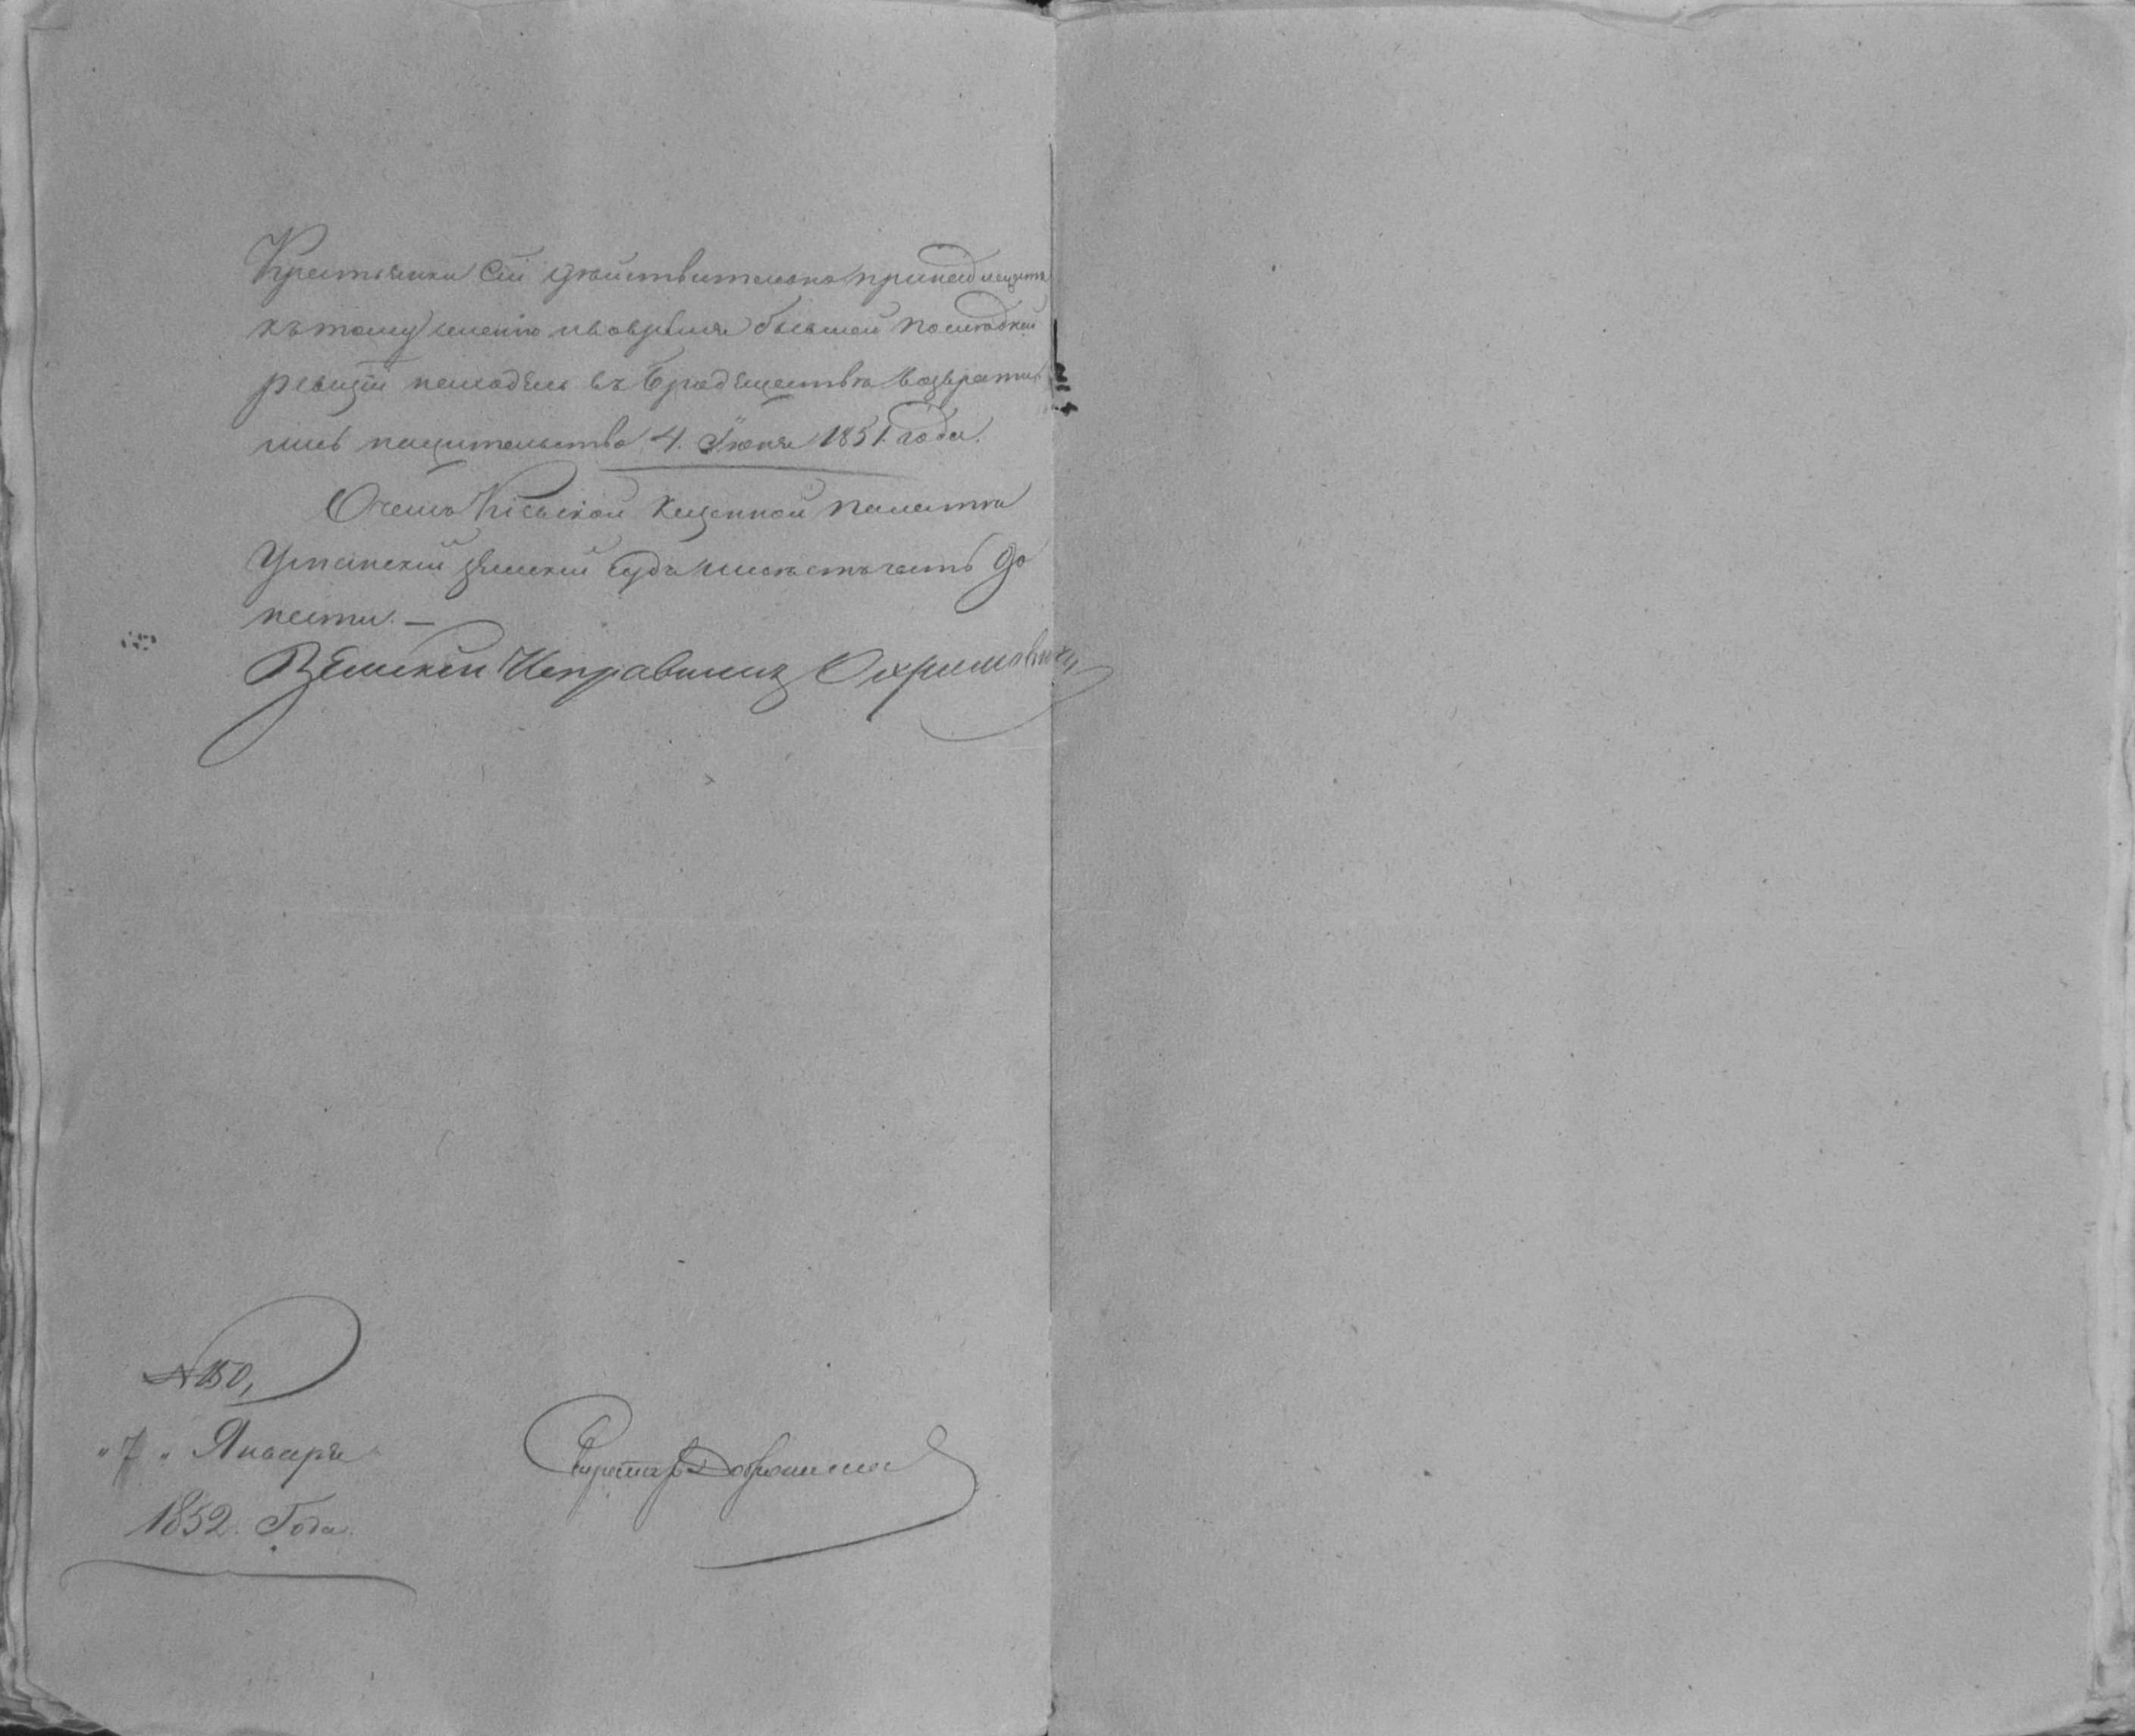 Крестьяне сіи дѣйствительно принадлежатъ
къ тому имѣнію и вовремя бывшей последней
ревизіи находясь въ бродяжествѣ возврати
лись на жительство 4. Іюня 1851. года.
О чемъ Кіевской Казенной Палатѣ
Уманскій Земскій Судъ имѣетъ честь до
нести. —
Земскій Исправникъ Охримовичъ
№ 150,
"7" Января
1852. Года.
Секретарь